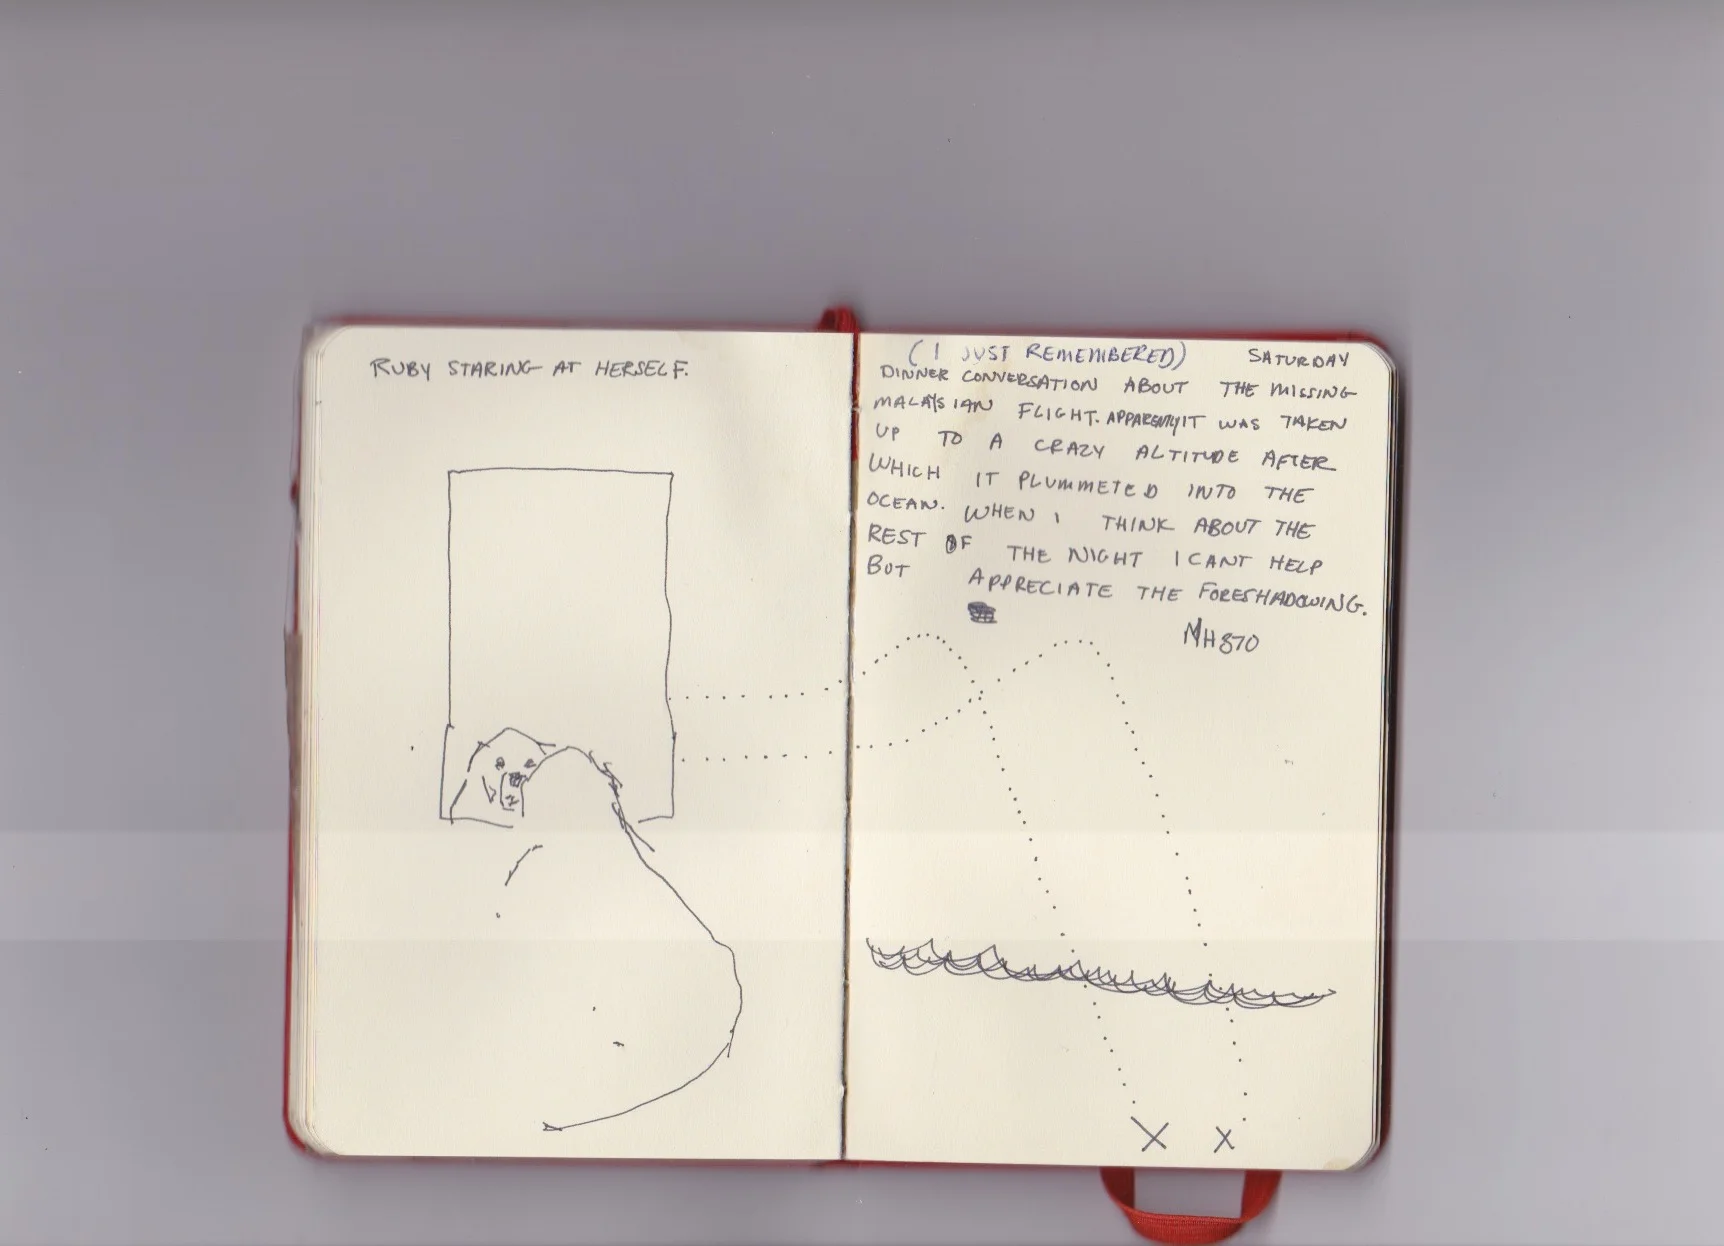 RUBY STARING AT HERSELF.
(I JUST REMEMBERED) SATURDAY
DINNER CONVERSATION ABOUT THE MISSING
MALAYSIAN FLIGHT. APPARENTLY IT WAS TAKEN
UP TO A CRAZY ALTITUDE AFTER
WHICH IT PLUMMETED INTO THE
OCEAN. WHEN I THINK ABOUT THE
REST OF THE NIGHT I CANT HELP
BUT APPRECIATE THE FORESHADOWING.
MH370